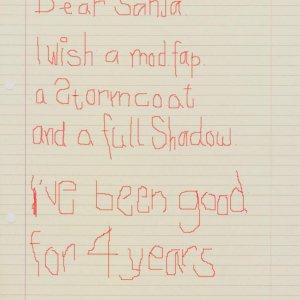 Dear Santa.
I wish a mod fap.
a Stormcoat
and a full Shadow.
I've been good
for 4 years